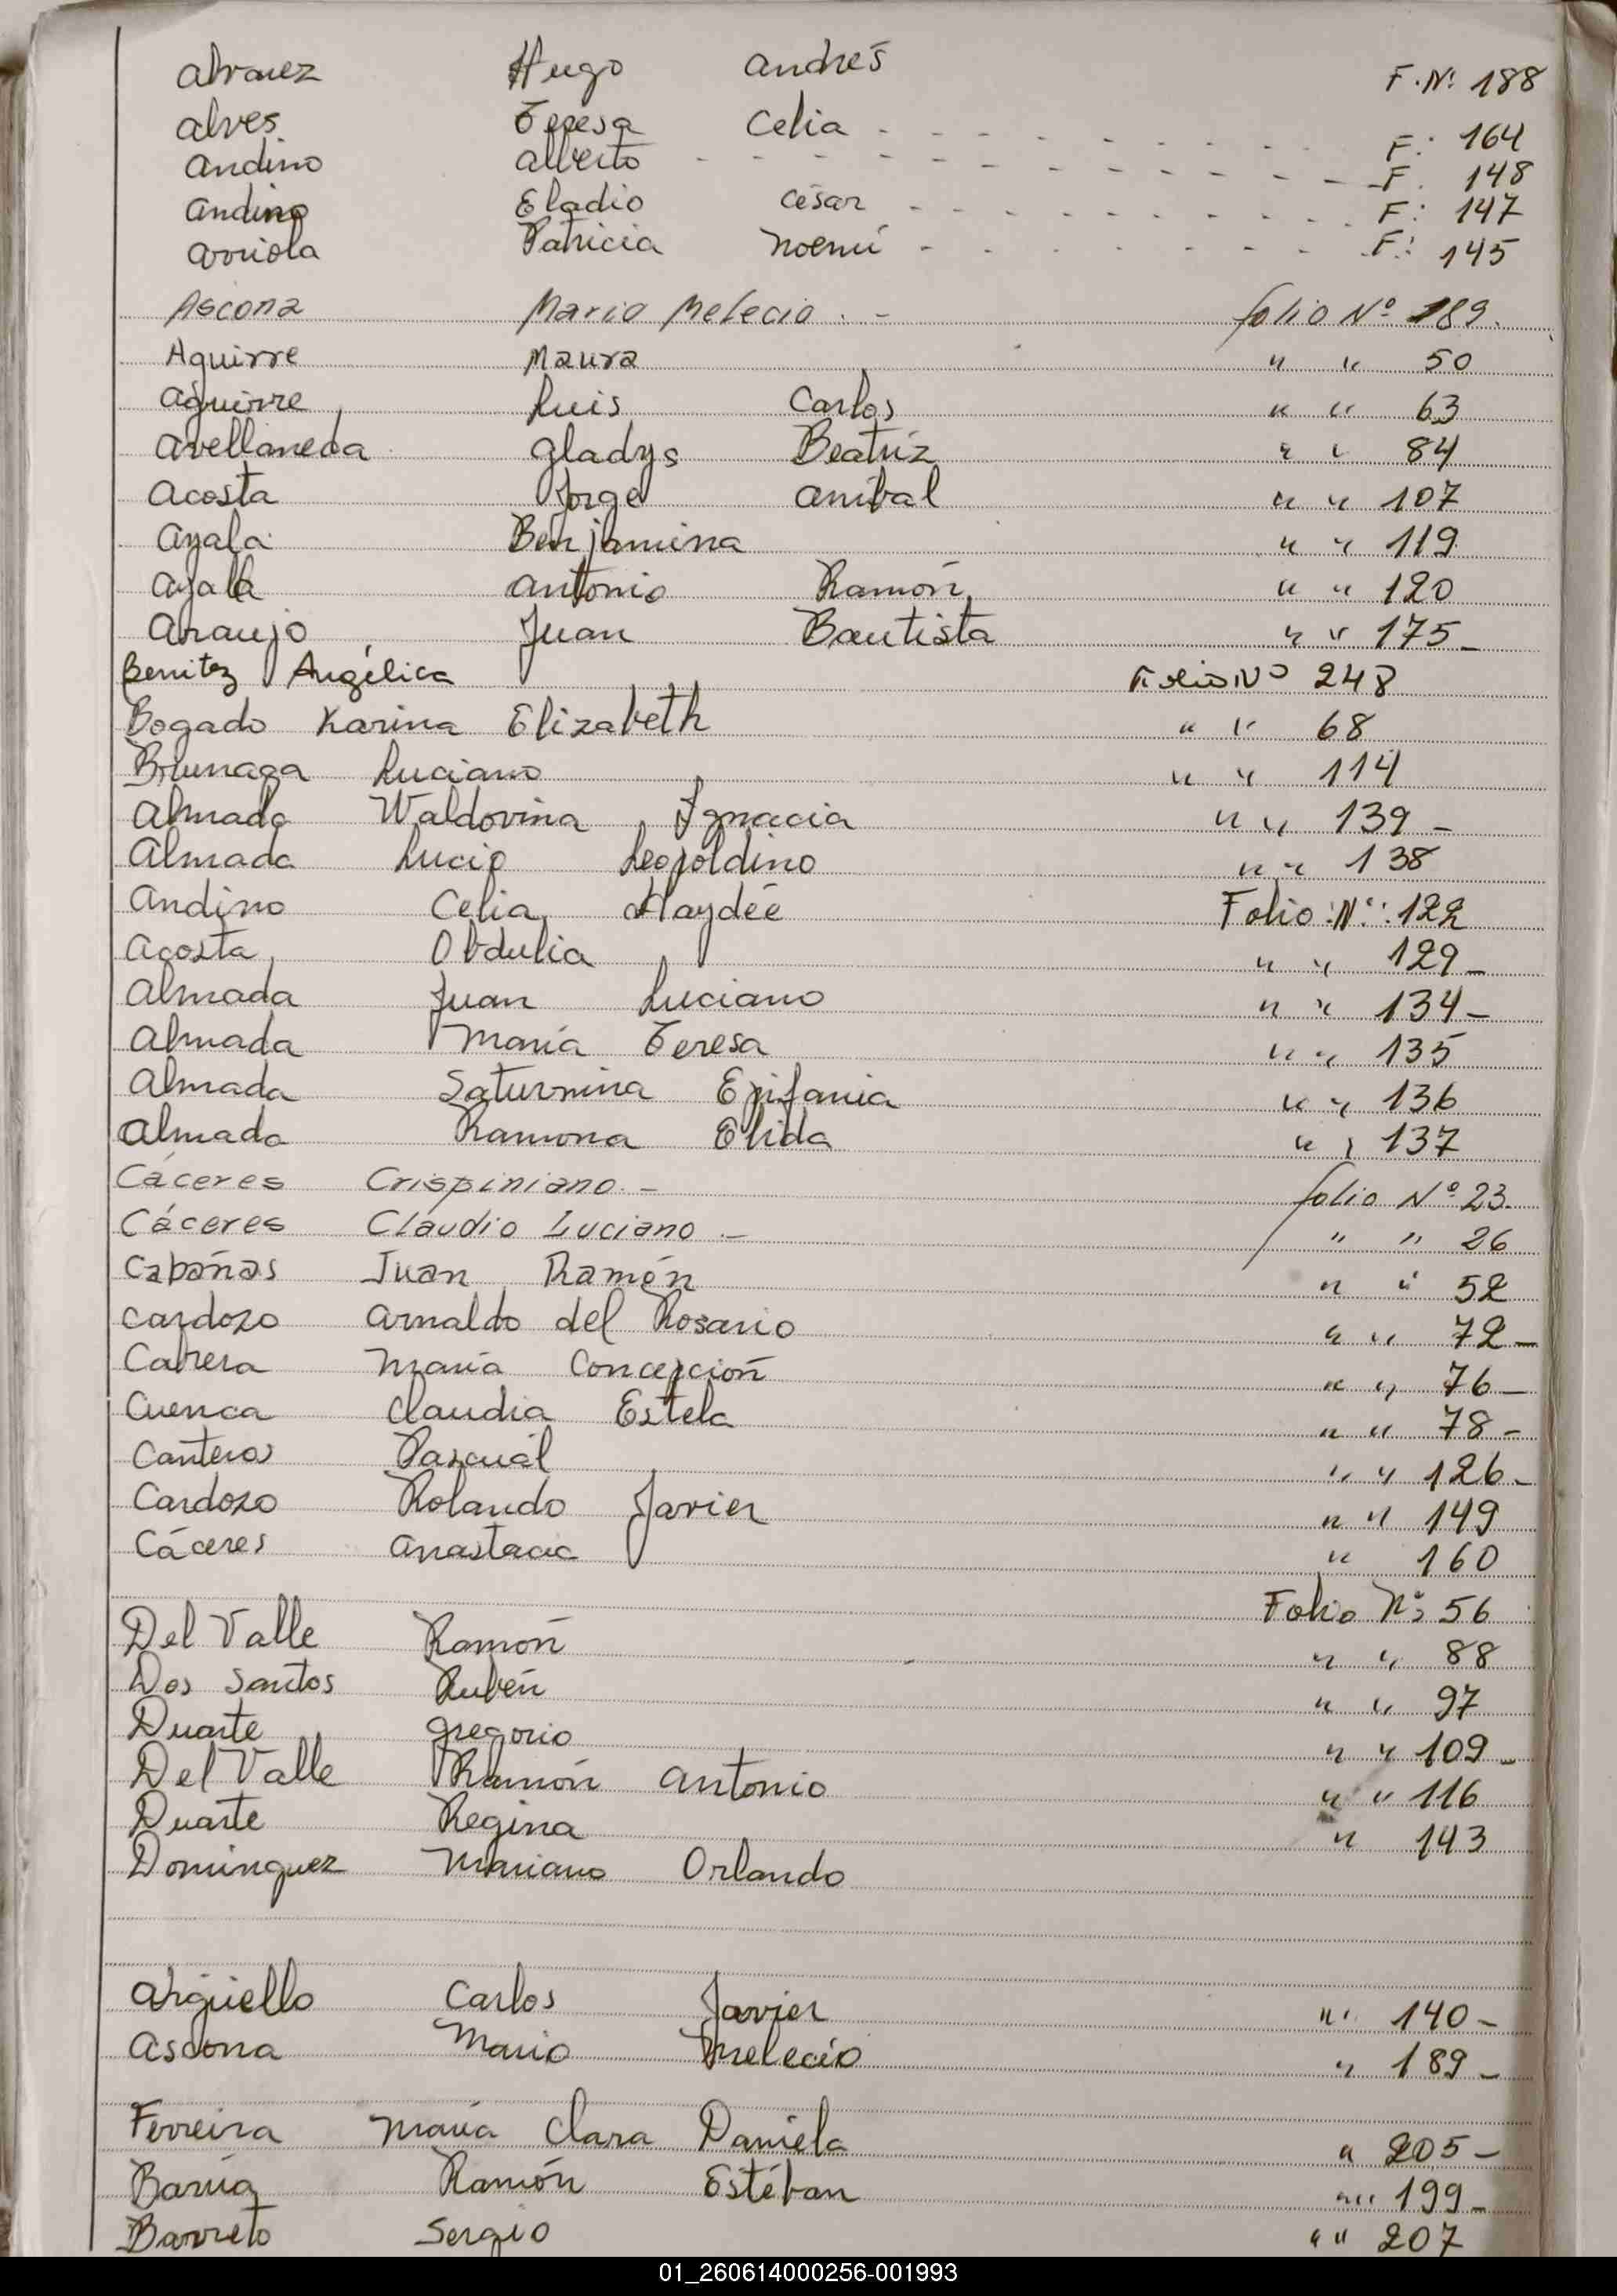 Alvarez Hugo Andrés F. Nº 188
Alves Teresa Celia - - - - - - - F: 164
Andino Alberto - - - - - - - - F. 148
Andino Eladio César - - - - - - - F: 147
Arriola Patricia Noemí - - - - - - F: 145
Ascona Mario Melecio . - folio Nº 189.
Aguirre Maura " " 50
Aguirre Luis Carlos " " 63
Avellaneda Gladys Beatríz " " 84
Acosta Jorge Aníbal " " 107
Ayala Benjamina " " 119
Ayala Antonio Ramón " " 120
Araujo Juan Bautista " " 175 -
Benitez Angélica Folio Nº 248
Bogado Karina Elizabeth " " 68
Brunaga Luciano " " 114
Almada Waldovina Ignacia " " 139 -
Almada Lucio Leopoldino " " 138
Andino Celia Haydée Folio Nº: 122
Acosta Obdulia " " 129 -
Almada Juan Luciano " " 134 -
Almada María Teresa " " 135
Almada Saturnina Epifania " " 136
Almada Ramona Elida " " 137
Cáceres Crispiniano. - folio Nº 23.
Cáceres Claudio Luciano - " " 26
Cabañas Juan Ramón " " 52
Cardozo Arnaldo del Rosario " " 72 -
Cabrera María Concepción " " 76 -
Cuenca Claudia Estela " " 78 -
Canteros Pascual " " 126 -
Cardozo Rolando Javier " " 149
Cáceres Anastacia " 160
Del Valle Ramón Folio Nº 56
Dos Santos Rubén " " 88
Duarte Gregorio " " 97
Del Valle Ramón Antonio " " 109 -
Duarte Regina " " 116
Dominguez Mariano Orlando " 143
Argüello Carlos Javier " " 140 -
Ascona Mario Melecio " 189 -
Ferreira María Clara Daniela " 205 -
Barua Ramón Estéban " " 199 -
Barreto Sergio " " 207
01_260614000256-001993